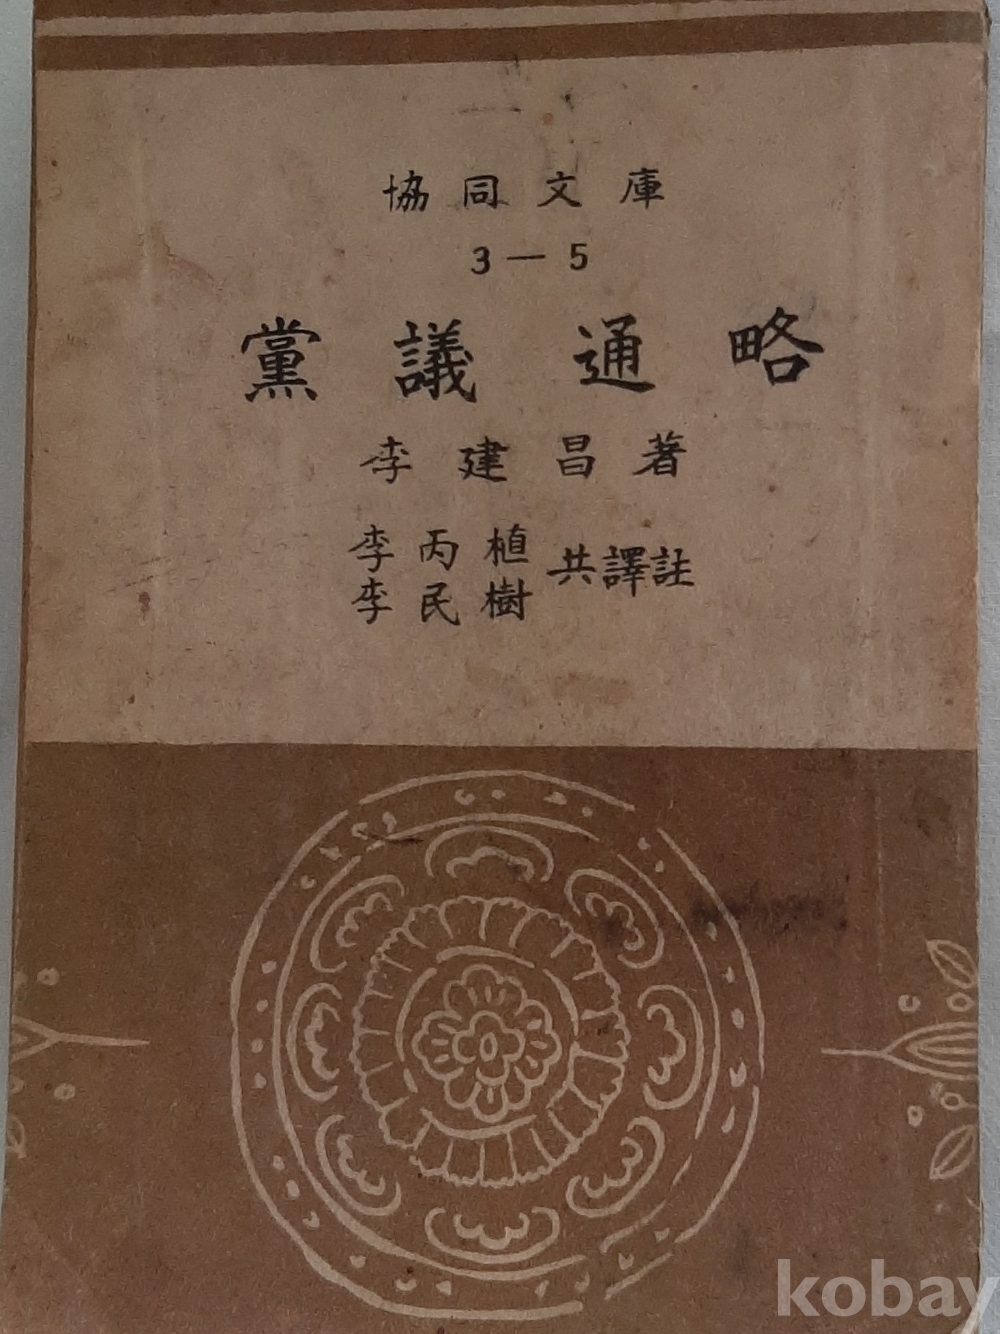 協同文庫
3—5
黨議通略
李建昌著
李丙植
李民樹
共譯註
kobay